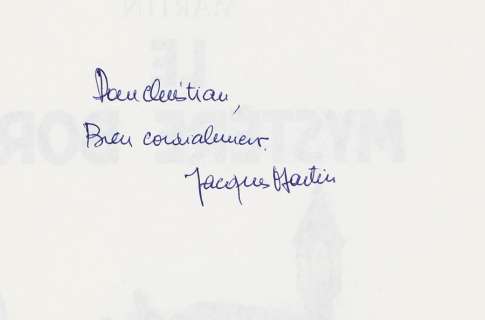 MARTIN
LE
Pour Christian,
Bien cordialement.
MYSTÈRE BOR
Jacques Martin